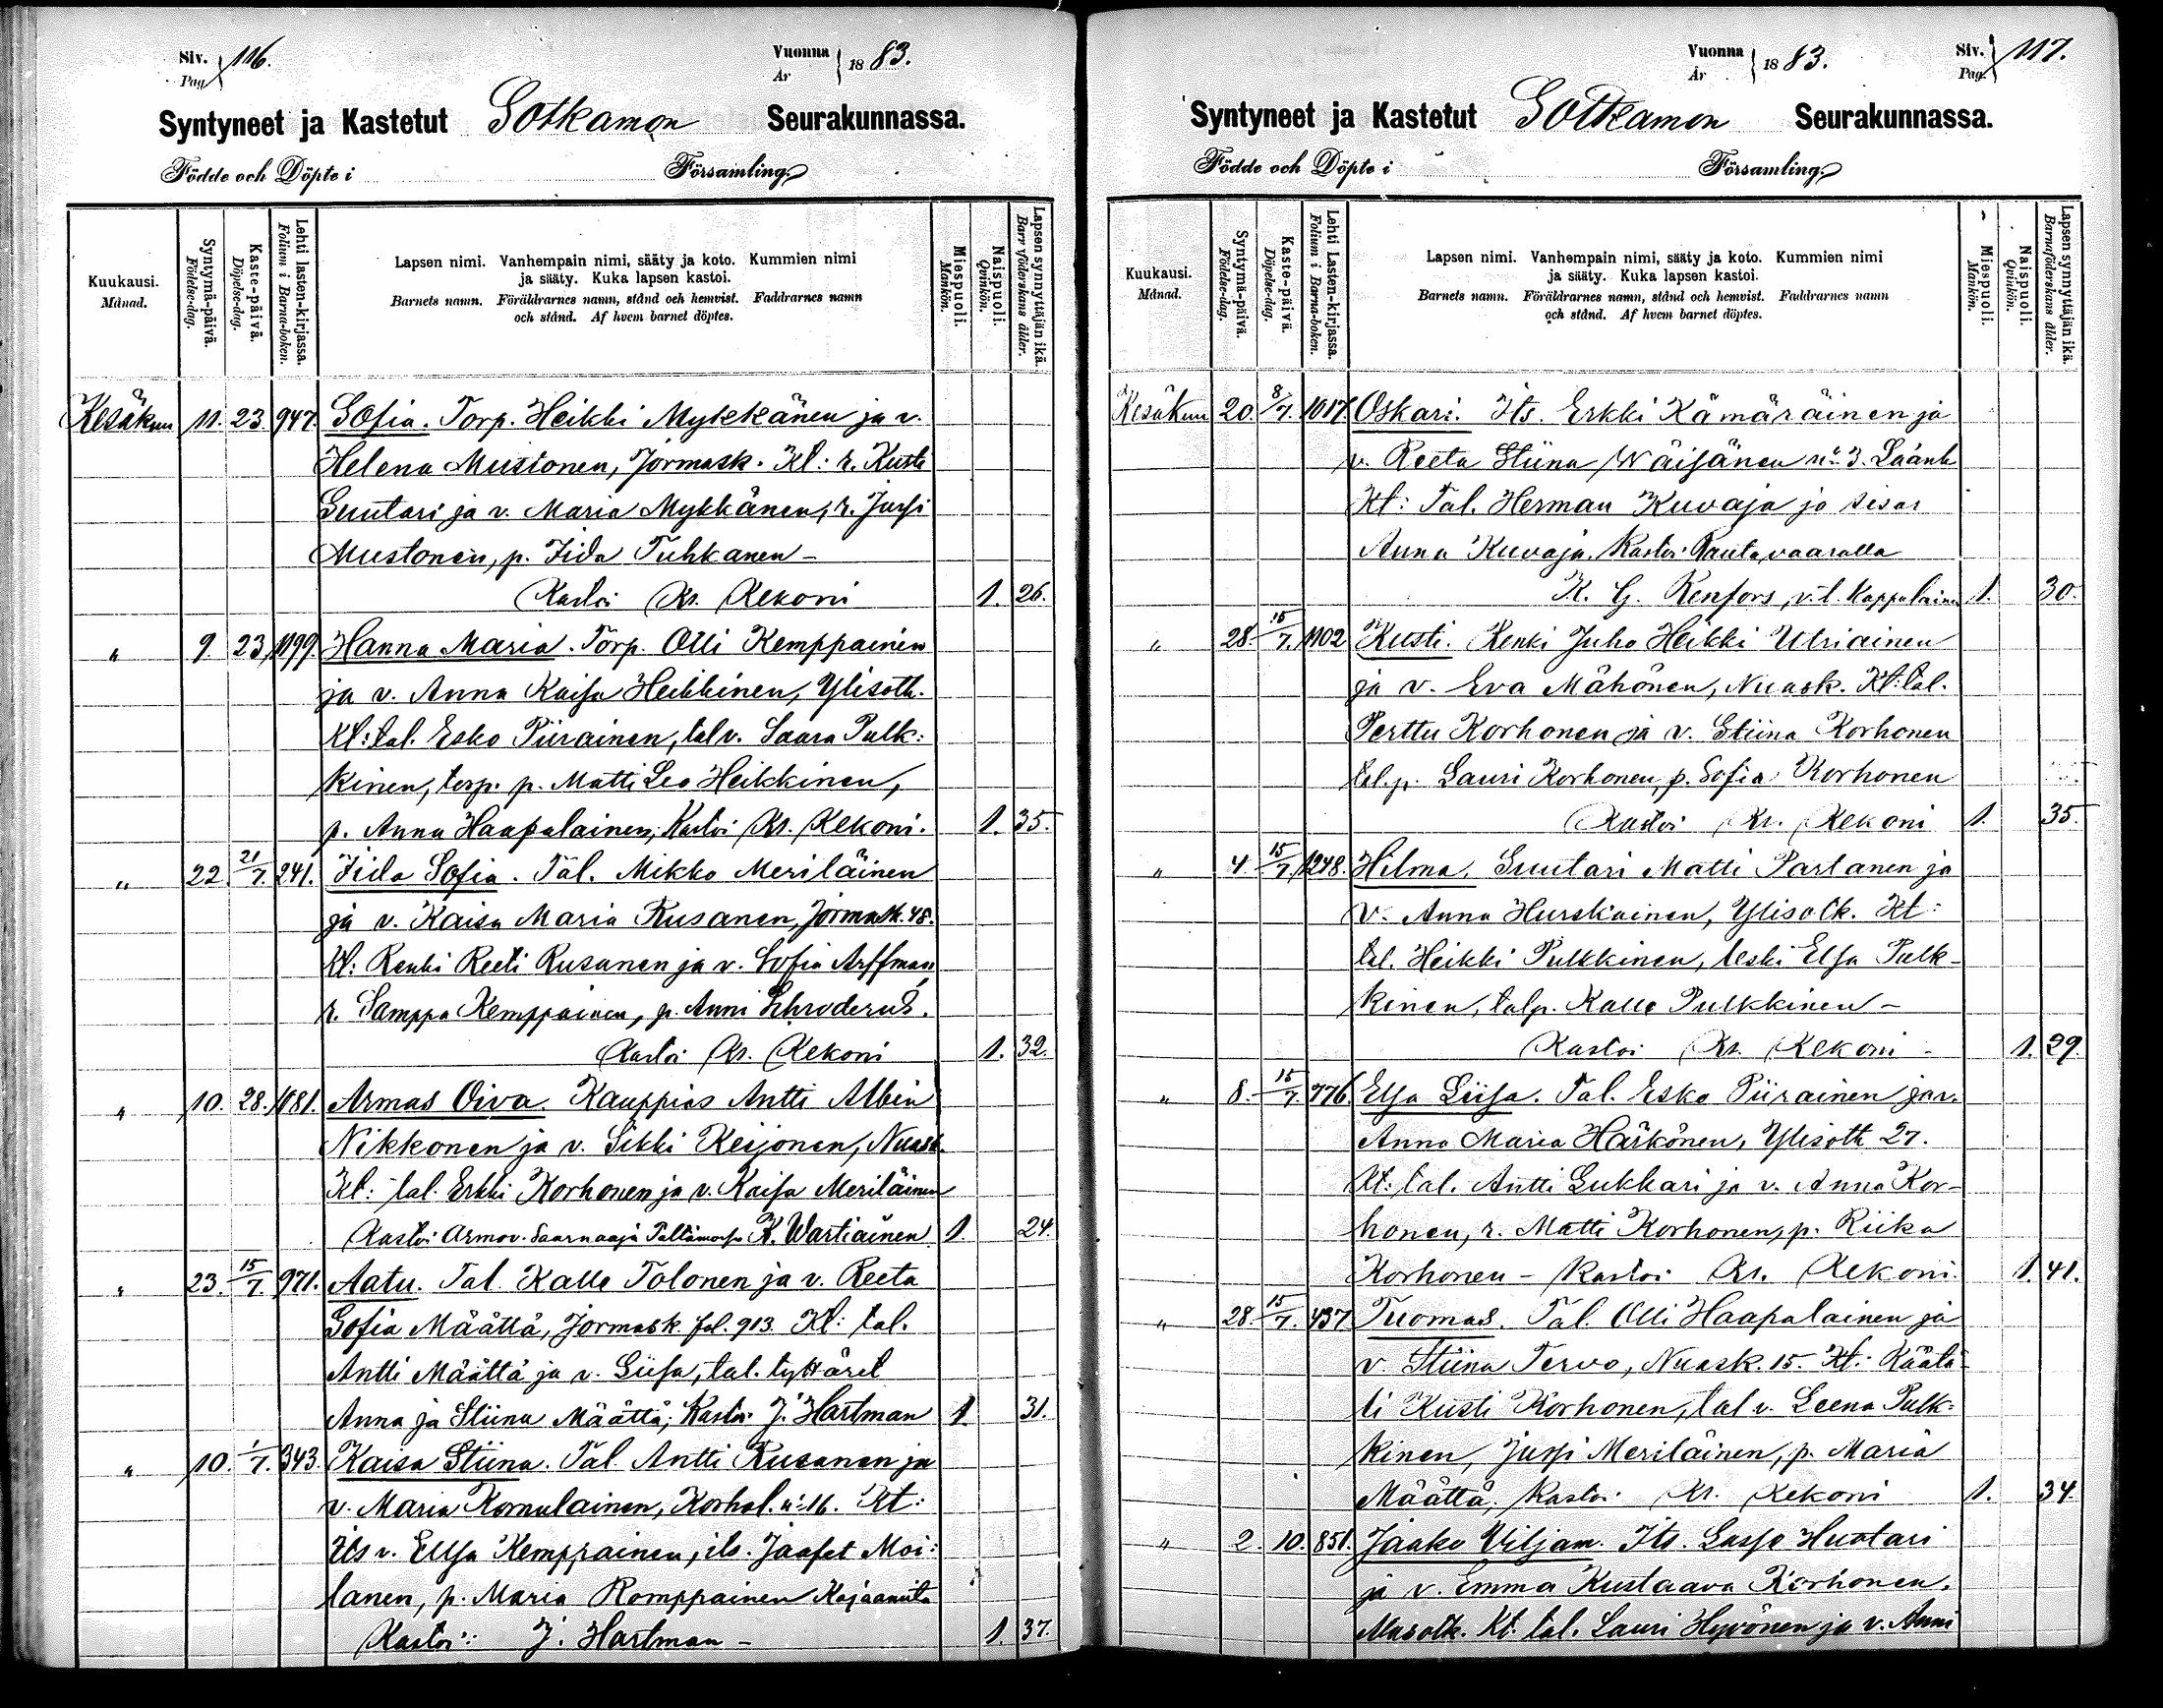 Siv. 116.
Pag
Vuonna 1883.
År
Syntyneet ja Kastetut Sotkamon Seurakunnassa.
Födde och Döpte i Församling.
Kuukausi.
Månad.
Syntymä-päivä.
Födelse-dag.
Kaste-päivä.
Döpelse-dag.
Lehti lasten-kirjassa.
Folium i Barna-boken.
Lapsen nimi. Vanhempain nimi, sääty ja koto. Kummien nimi
ja sääty. Kuka lapsen kastoi.
Barnets namn. Föräldrarnes namn, stånd och hemvist. Faddrarnes namn
och stånd. Af hvem barnet döptes.
Miespuoli.
Mankön.
Naispuoli.
Qvinkön.
Lapsen synnyttäjän ikä.
Barnaföderskans ålder.
Kesäkuu 11. 23. 947. Sofia. Torp. Heikki Mykkänen ja v.
Helena Mustonen, Jormask. Kt: r. Kusti
Suutari ja v. Maria Mykkänen, r. Jussi
Mustonen, p. Iida Tuhkanen –
Kastoi Kr. Kekoni 1. 26.
" 9. 23, 1199. Hanna Maria. Torp. Olli Kemppainen
ja v. Anna Kaisa Heikkinen, Ylisotk.
Kt: tal. Esko Piirainen, tal v. Saara Pulk:
kinen, torp. p. Matti Leo Heikkinen,
p. Anna Haapalainen, Kastoi Kr. Kekoni. 1. 35.
" 22. 21/7. 241. Iida Sofia. Tal. Mikko Meriläinen
ja v. Kaisa Maria Rusanen, Jormask. 48.
Kt: Renki Reeti Rusanen ja v. Sofia Arffman,
r. Samppa Kemppainen, p. Anni Schroderus.
Kastoi Kr. Kekoni 1. 32.
" 10. 28. 1081. Armas Oiva. Kauppias Antti Albin
Nikkonen ja v. Sikki Keijonen, Nuask.
Kt: tal. Erkki Korhonen ja v. Kaisa Meriläinen
Kastoi Armov. Saarnaaja K. Wartiainen 1. 24.
" 23. 15/7. 971. Aatu. Tal. Kalle Tolonen ja v. Reeta
Sofia Määttä, Jormask. fol. 913. Kt: tal.
Antti Määttä ja v. Liisa, tal. tyttäret
Anna ja Stiina Määttä, Kastoi J. Hartman 1. 31.
" 10. 1/7. 343. Kaisa Stiina. Tal. Antti Rusanen ja
v. Maria Komulainen, Korhol. n:o 16. Kt:
its v. Elsa Kemppainen, its. Jaafet Moi:
lanen, p. Maria Romppainen Kajaanista
Kastoi: J. Hartman – 1. 37.
Vuonna 1883.
År
Siv. 117.
Pag.
Syntyneet ja Kastetut Sotkamon Seurakunnassa.
Födde och Döpte i Församling.
Kuukausi.
Månad.
Syntymä-päivä.
Födelse-dag.
Kaste-päivä.
Döpelse-dag.
Lehti Lasten-kirjassa.
Folium i Barna-boken.
Lapsen nimi. Vanhempain nimi, sääty ja koto. Kummien nimi
ja sääty. Kuka lapsen kastoi.
Barnets namn. Föräldrarnes namn, stånd och hemvist. Faddrarnes namn
och stånd. Af hvem barnet döptes.
Miespuoli.
Mankön.
Naispuoli.
Qvinkön.
Lapsen synnyttäjän ikä.
Barnaföderskans ålder.
Kesäkuu 20. 8/7. 1017. Oskari. Its. Erkki Kämäräinen ja
v. Reeta Stiina Wäisänen n:o 3.
Kt: Tal. Herman Kuvaja ja sisar
Anna Kuvaja. Kastoi Rautavaaralla
K. G. Renfors, v.t. Kappalainen 1. 30.
" 28. 15/7. 1102 Kusti. Renki Juho Heikki Utriainen
ja v. Eva Mähönen, Nuask. Kt: tal.
Perttu Korhonen ja v. Stiina Korhonen
tal.p. Lauri Korhonen, p. Sofia Korhonen
Kastoi Kr. Kekoni 1. 35.
" 4. 15/7. 1248. Hilma. Suutari Matti Partanen ja
v. Anna Hurskainen, Ylisotk. Kt:
tal. Heikki Pulkkinen, leski Elsa Pulk-
kinen, talp. Kalle Pulkkinen –
Kastoi Kr. Kekoni – 1. 29.
" 8. 15/7. 776. Elsa Liisa. Tal. Esko Piirainen ja v.
Anna Maria Härkönen, Ylisotk 27.
Kt: tal. Antti Lukkari ja v. Anna Kor-
honen, r. Matti Korhonen, p. Riika
Korhonen – Kastoi Kr. Kekoni. 1. 41.
" 28. 15/7. 437 Tuomas. Tal. Olli Haapalainen ja
v. Stiina Tervo, Nuask. 15. Kt: Räätä-
li Kusti Korhonen, tal v. Leena Pulk:
kinen, Jussi Meriläinen, p. Maria
Määttä, Kastoi Kr. Kekoni 1. 34.
" 2. 10. 851. Jaako Viljam. Its. Lasse Huotari
ja v. Emma Kustaava Korhonen.
Kt. tal. Lauri Hyvönen ja v. Anni